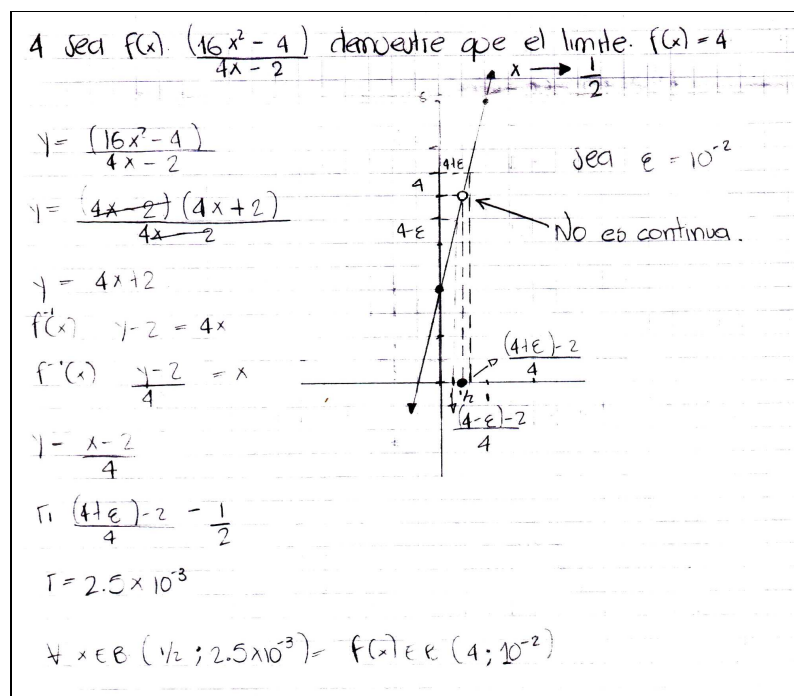 4 Sea f(x). (16x² - 4) / 4x - 2 demuestre que el limite. f(x) = 4
x → 1/2
y = (16x² - 4) / 4x - 2
y = (4x - 2)(4x + 2) / 4x - 2
y = 4x+2
f⁻¹(x) y-2 = 4x
f⁻¹(x) y-2 / 4 = x
y - x-2 / 4
r₁ (4+ε)-2 / 4 - 1/2
r = 2.5 x 10⁻³
∀ x ∈ B (1/2 ; 2.5x10⁻³) = f(x) ∈ E (4 ; 10⁻²)
4+ε
4
4-ε
Sea ε = 10⁻²
No es continua.
(4+ε)-2 / 4
1/2
(4-ε)-2 / 4